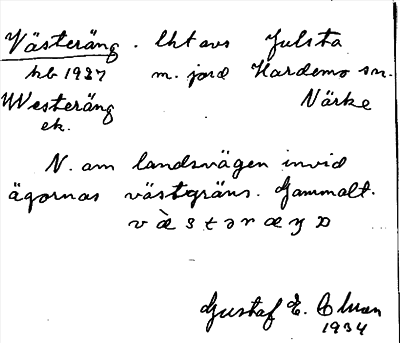 Västeräng. lht avs Julsta
hb 1927 m. jord Hardemo sn.
Westeräng Närke
ek.
N. om landsvägen invid
ägornas västgräns. Gammalt.
Gustaf E.
1934